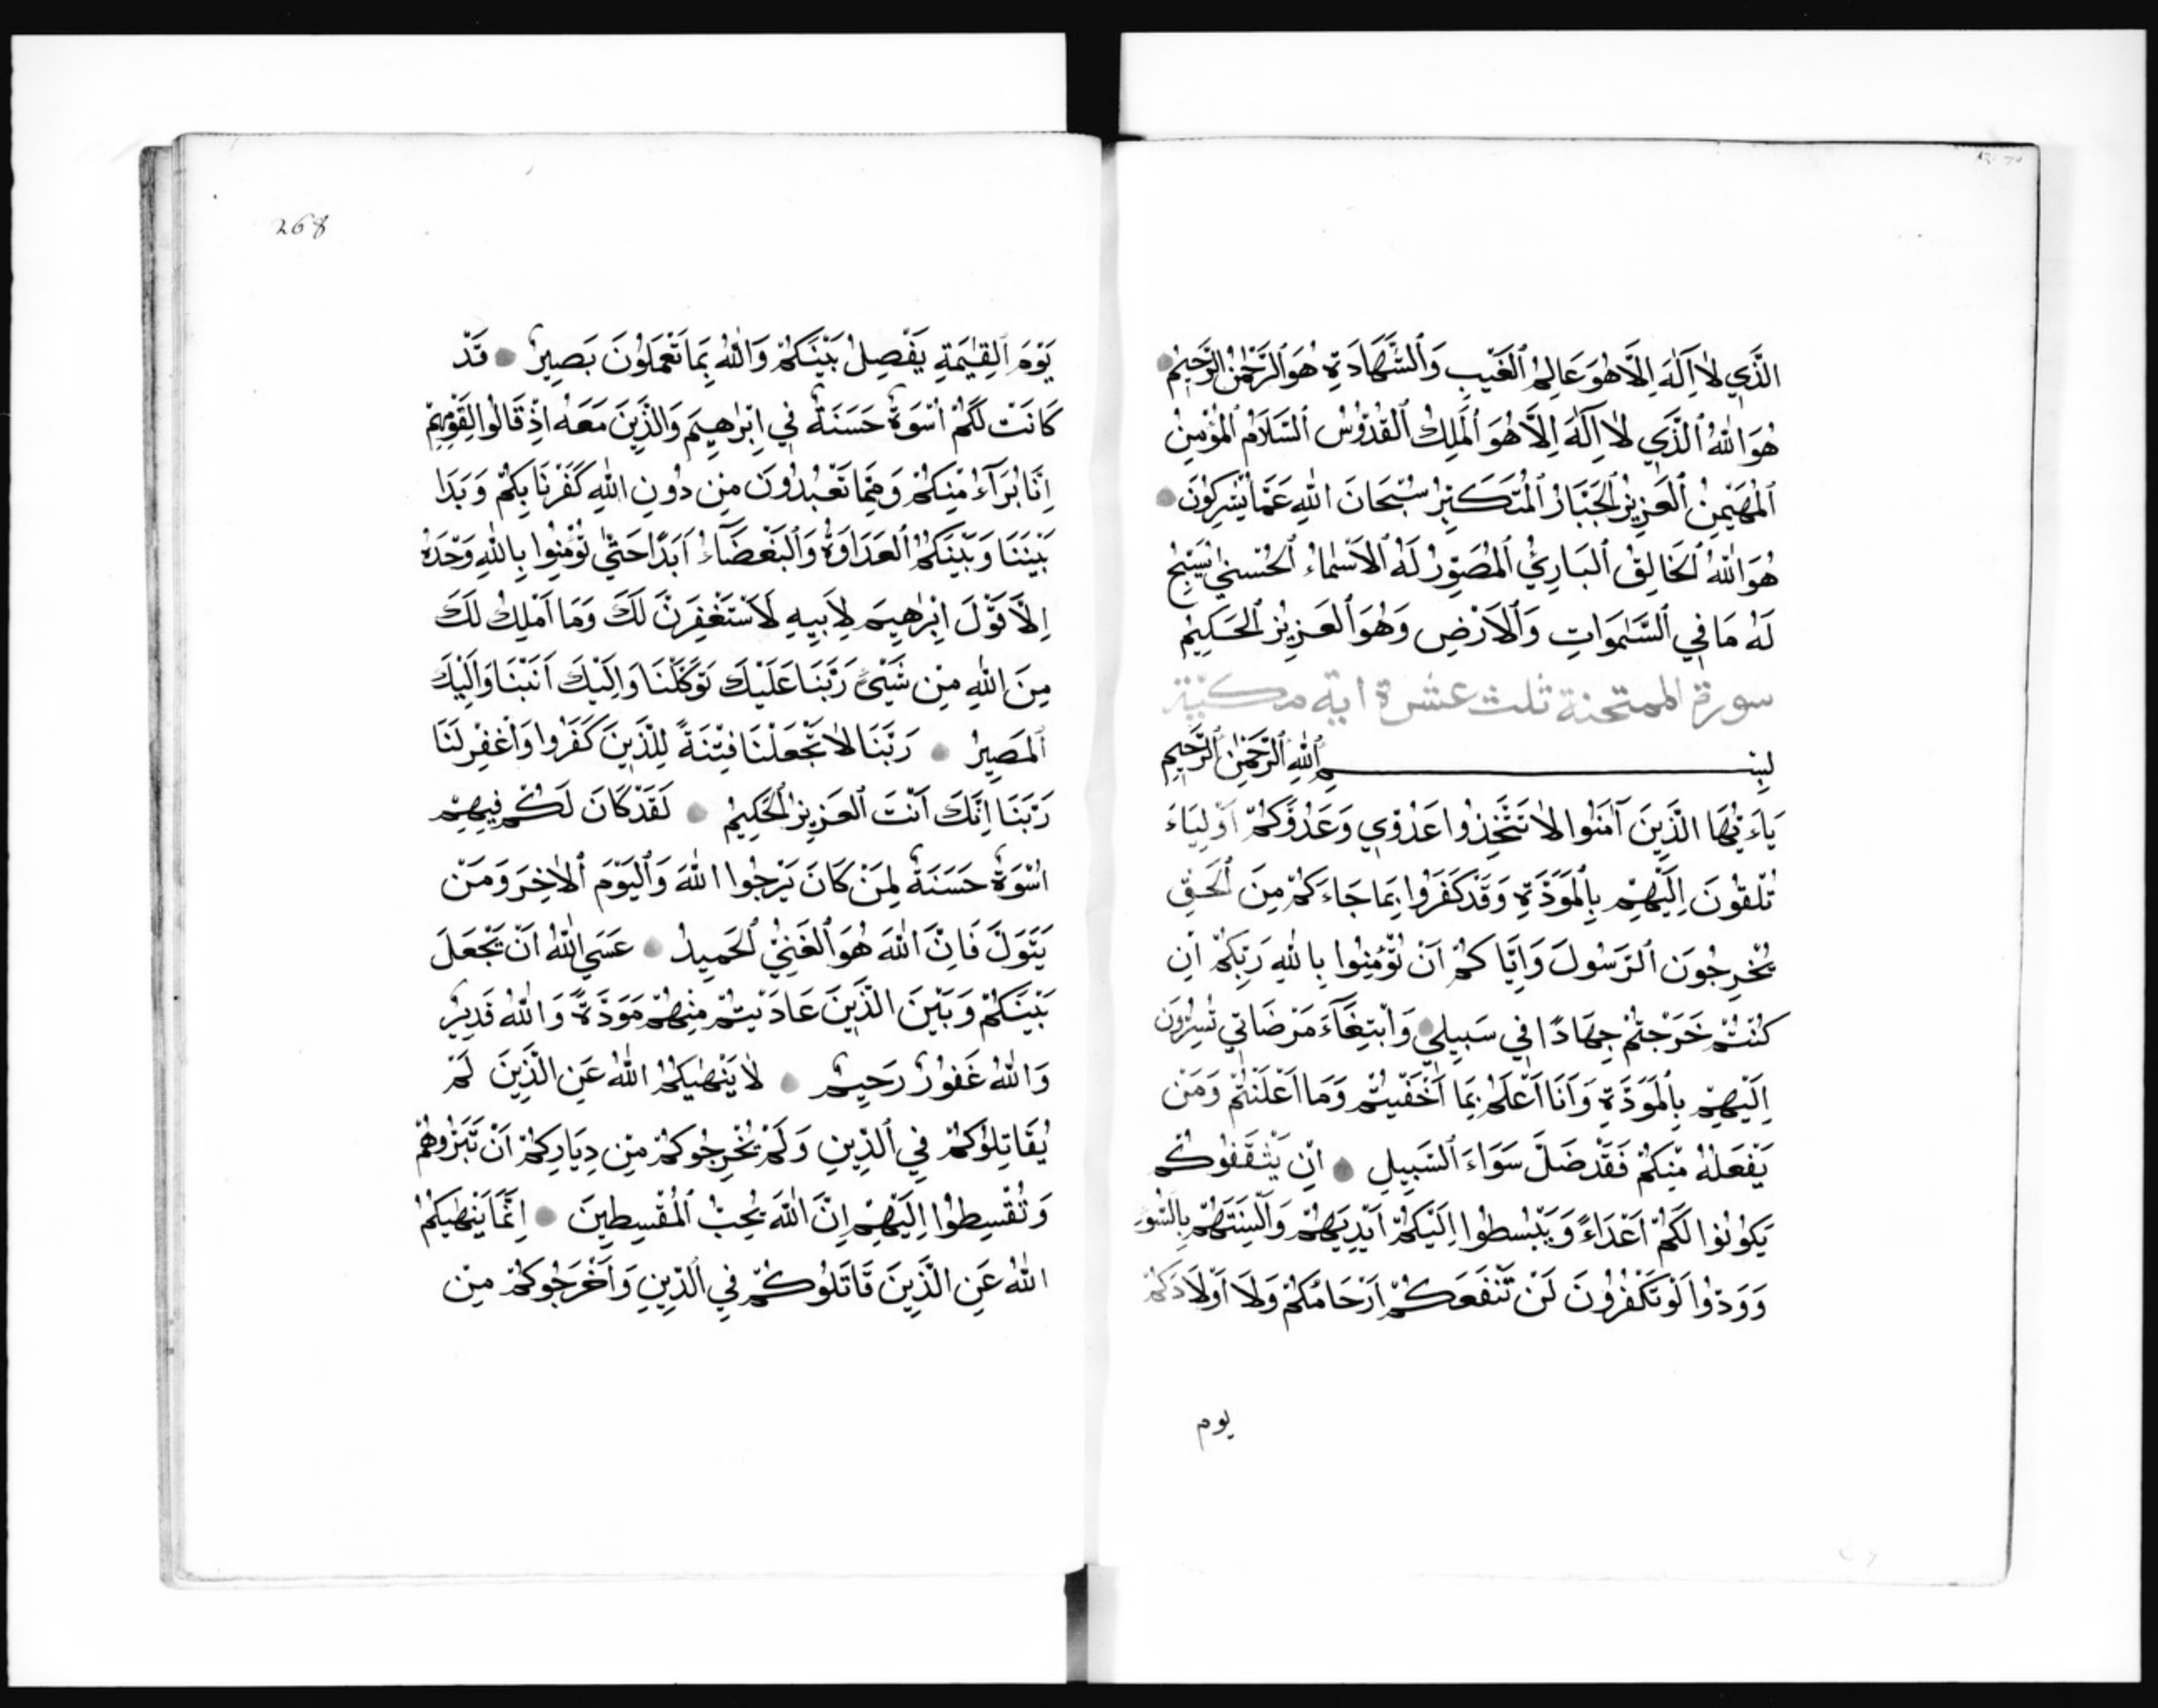 الَّذِي لَا اِلٰهَ اِلَّا هُوَ عَالِمُ الْغَيْبِ وَالشَّهَادَةِ هُوَ الرَّحْمٰنُ الرَّحِيمُ
هُوَ اللّٰهُ الَّذِي لَا اِلٰهَ اِلَّا هُوَ الْمَلِكُ الْقُدُّوسُ السَّلَامُ الْمُؤْمِنُ
الْمُهَيْمِنُ الْعَزِيزُ الْجَبَّارُ الْمُتَكَبِّرُ سُبْحَانَ اللّٰهِ عَمَّا يُشْرِكُونَ
هُوَ اللّٰهُ الْخَالِقُ الْبَارِئُ الْمُصَوِّرُ لَهُ الْاَسْمَاءُ الْحُسْنٰي يُسَبِّحُ
لَهُ مَا فِي السَّمٰوَاتِ وَالْاَرْضِ وَهُوَ الْعَزِيزُ الْحَكِيمُ
سورة الممتحنة ثلث عشرة اية مكية
بِسْمِ اللّٰهِ الرَّحْمٰنِ الرَّحِيمِ
يَاءَيُّهَا الَّذِينَ آمَنُوا لَا تَتَّخِذُوا عَدُوِّي وَعَدُوَّكُمْ اَوْلِيَاءَ
تُلْقُونَ اِلَيْهِمْ بِالْمَوَدَّةِ وَقَدْ كَفَرُوا بِمَا جَاءَكُمْ مِنَ الْحَقِّ
يُخْرِجُونَ الرَّسُولَ وَاِيَّاكُمْ اَنْ تُؤْمِنُوا بِاللّٰهِ رَبِّكُمْ اِنْ
كُنْتُمْ خَرَجْتُمْ جِهَادًا فِي سَبِيلِي وَابْتِغَآءَ مَرْضَاتِي تُسِرُّونَ
اِلَيْهِمْ بِالْمَوَدَّةِ وَاَنَا اَعْلَمُ بِمَا اَخْفَيْتُمْ وَمَا اَعْلَنْتُمْ وَمَنْ
يَفْعَلْهُ مِنْكُمْ فَقَدْ ضَلَّ سَوَاءَ السَّبِيلِ اِنْ يَثْقَفُوكُمْ
يَكُونُوا لَكُمْ اَعْدَاءً وَيَبْسُطُوا اِلَيْكُمْ اَيْدِيَهُمْ وَاَلْسِنَتَهُمْ بِالسُّوءِ
وَوَدُّوا لَوْ تَكْفُرُونَ لَنْ تَنْفَعَكُمْ اَرْحَامُكُمْ وَلَا اَوْلَادُكُمْ
يوم
268
يَوْمَ الْقِيٰمَةِ يَفْصِلُ بَيْنَكُمْ وَاللّٰهُ بِمَا تَعْمَلُونَ بَصِيرٌ قَدْ
كَانَتْ لَكُمْ اُسْوَةٌ حَسَنَةٌ فِي اِبْرٰهِيمَ وَالَّذِينَ مَعَهُ اِذْ قَالُوا لِقَوْمِهِمْ
اِنَّا بُرَآءُ مِنْكُمْ وَمِمَّا تَعْبُدُونَ مِنْ دُونِ اللّٰهِ كَفَرْنَا بِكُمْ وَبَدَا
بَيْنَنَا وَبَيْنَكُمُ الْعَدَاوَةُ وَالْبَغْضَآءُ اَبَدًا حَتّٰي تُؤْمِنُوا بِاللّٰهِ وَحْدَهُ
اِلَّا قَوْلَ اِبْرٰهِيمَ لِاَبِيهِ لَاَسْتَغْفِرَنَّ لَكَ وَمَا اَمْلِكُ لَكَ
مِنَ اللّٰهِ مِنْ شَيْئٍ رَبَّنَا عَلَيْكَ تَوَكَّلْنَا وَاِلَيْكَ اَنَبْنَا وَاِلَيْكَ
الْمَصِيرُ رَبَّنَا لَا تَجْعَلْنَا فِتْنَةً لِلَّذِينَ كَفَرُوا وَاغْفِرْ لَنَا
رَبَّنَا اِنَّكَ اَنْتَ الْعَزِيزُ الْحَكِيمُ لَقَدْ كَانَ لَكُمْ فِيهِمْ
اُسْوَةٌ حَسَنَةٌ لِمَنْ كَانَ يَرْجُوا اللّٰهَ وَالْيَوْمَ الْاٰخِرَ وَمَنْ
يَتَوَلَّ فَاِنَّ اللّٰهَ هُوَ الْغَنِيُّ الْحَمِيدُ عَسَي اللّٰهُ اَنْ يَجْعَلَ
بَيْنَكُمْ وَبَيْنَ الَّذِينَ عَادَيْتُمْ مِنْهُمْ مَوَدَّةً وَاللّٰهُ قَدِيرٌ
وَاللّٰهُ غَفُورٌ رَحِيمٌ لَا يَنْهٰيكُمُ اللّٰهُ عَنِ الَّذِينَ لَمْ
يُقَاتِلُوكُمْ فِي الدِّينِ وَلَمْ يُخْرِجُوكُمْ مِنْ دِيَارِكُمْ اَنْ تَبَرُّوهُمْ
وَتُقْسِطُوا اِلَيْهِمْ اِنَّ اللّٰهَ يُحِبُّ الْمُقْسِطِينَ اِنَّمَا يَنْهٰيكُمُ
اللّٰهُ عَنِ الَّذِينَ قَاتَلُوكُمْ فِي الدِّينِ وَاَخْرَجُوكُمْ مِنْ